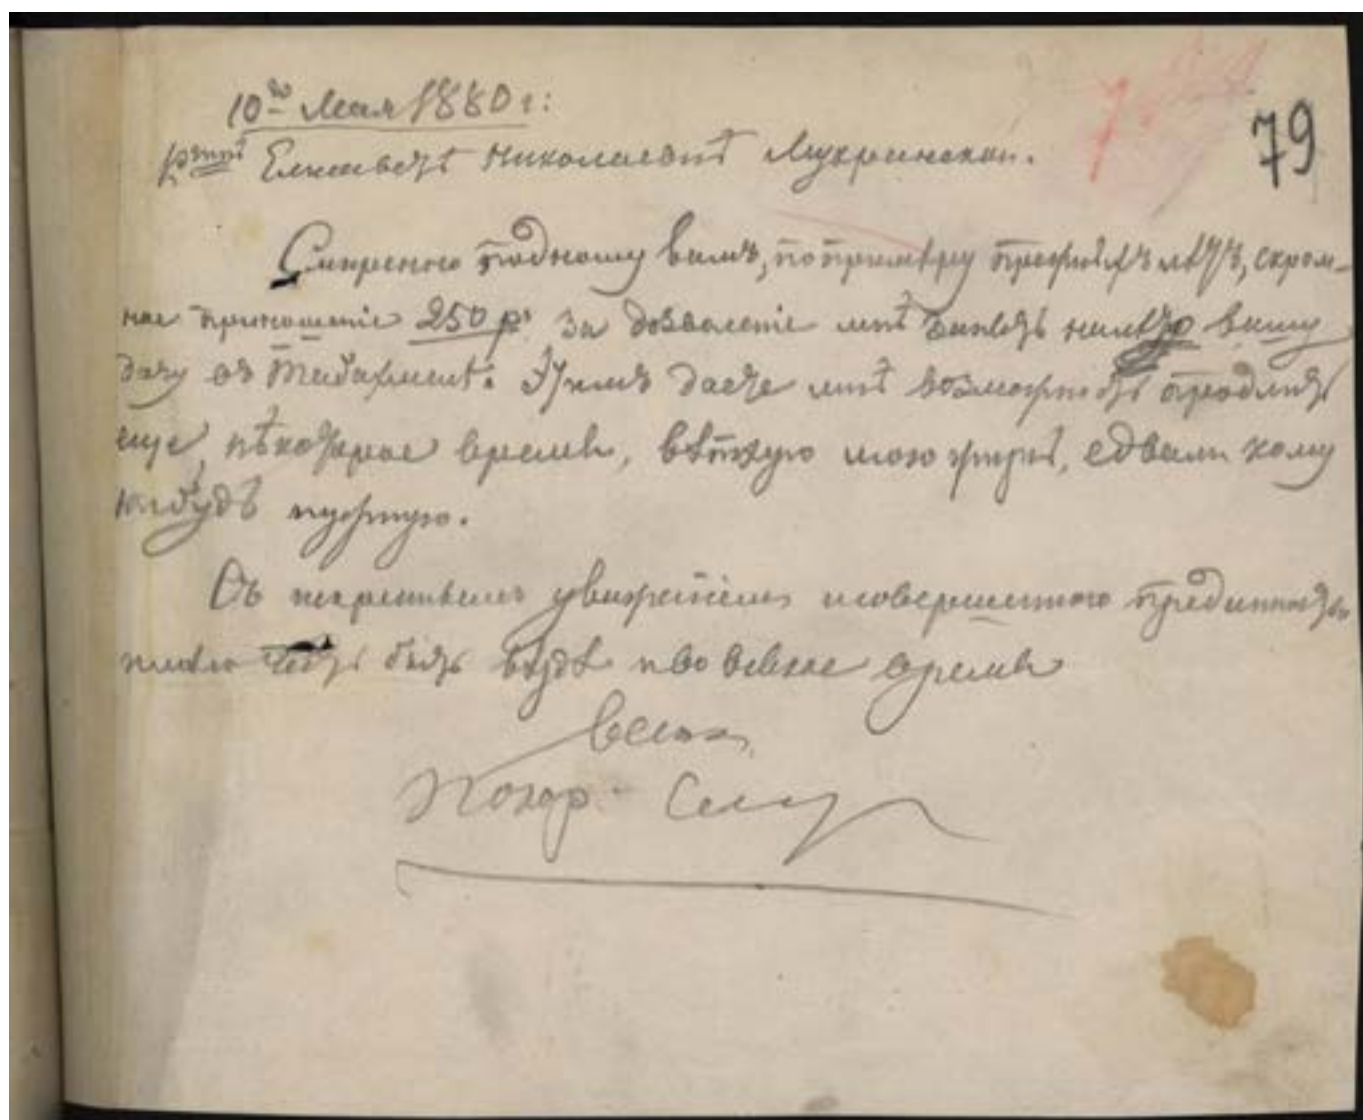 10го Мая 1880 г:
79
Елисаветѣ Николаевнѣ Мухранской.
Смиренно подношу вамъ, по примѣру прежнихъ лѣтъ, скром-
ное приношеніе 250 р. за дозволеніе мнѣ занять нижнюю вашу
дачу въ Этимъ даете мнѣ возможность продлить
еще, нѣкоторое время, вѣтхую мою жизнь, едвали кому
нибудь нужную.
Съ искреннимъ уваженіемъ и совершенною преданностью
имѣю честь быть вездѣ и во всякое время
вашъ